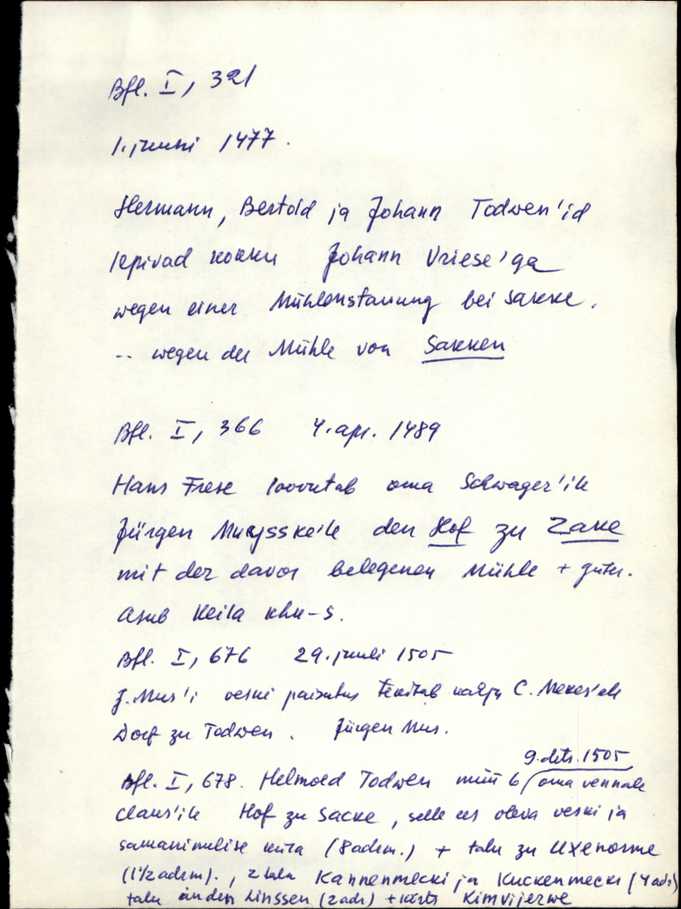 Bfl. I, 321
1. juuni 1477.
Hermann, Bertold ja Johann Todwen'id
lepivad kokku Johann Vriese'ga
wegen einer Mühlenstauung bei Sakke.
-- wegen der Mühle von Sakken
Bfl. I, 366 4. apr. 1489
Hans Frese loovutab oma Schwager'ile
Jürgen den Hof zu Zake
mit der davor belegenen Mühle + guter.
Asub Keila khk-s.
Bfl. I, 676 29. juuli 1505
J. Mus'i veski paisutus tekitab kahju C. Mekes'ele
Dorf zu Todwen. Jürgen Mus.
9. dets. 1505
Bfl. I, 678. Helmold Todwen müüb oma vennale
Claus'ile Hof zu Sacke, selle ees oleva veski ja
samanimelise küla (8 adrm.) + talu zu Uxenorme
(1 1/2 adrm)., 2 talu Kannenmecki ja Kuckenmecki (4 adr)
talu änden Linssen (2 adr) + kõrts Kimvijerwe